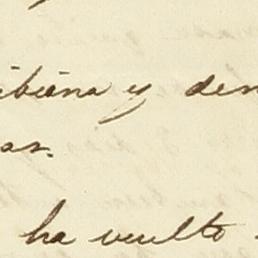 ibiana y den
as.
ha vuelto